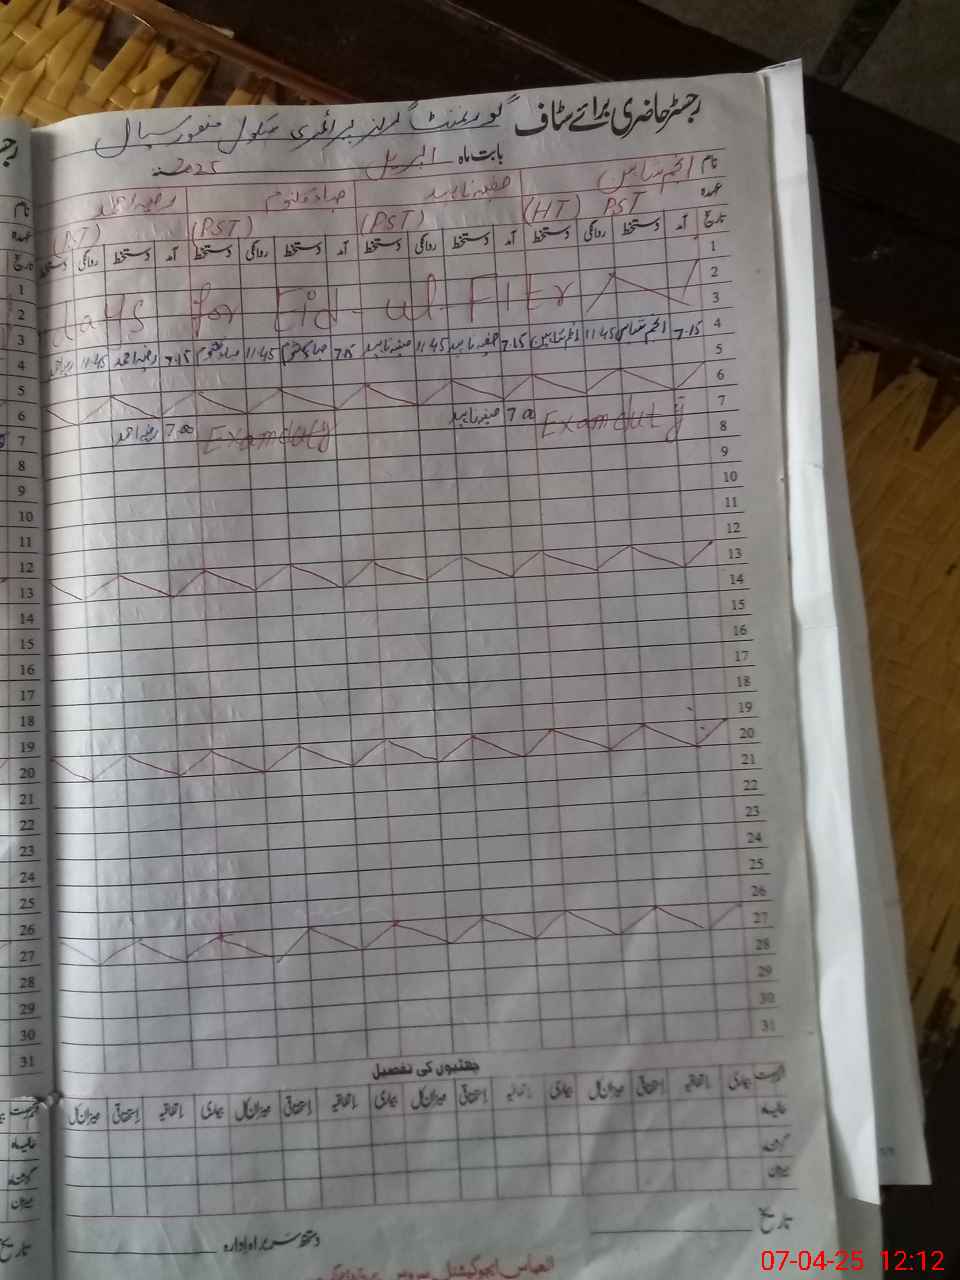 رجسٹر حاضری برائے سٹاف گورنمنٹ گرلز پرائمری سکول منصور سیال
بابت ماہ اپریل 2025
نام انجم شاہین صفیہ ناہید صباء کلثوم رضیہ احمد
عہدہ PST (HT) (PST) (PST) (PST)
تاریخ آمد دستخط روانگی دستخط آمد دستخط روانگی دستخط آمد دستخط روانگی دستخط آمد دستخط روانگی دستخط
1
2
3 for Eid-ul-Fiter
4 7.15 انجم شاہین 11:45 انجم شاہین 7.15 صفیہ ناہید 11:45 صفیہ ناہید 7.15 صباء کلثوم 11:45 صباء کلثوم 7.15 رضیہ احمد 11:45
5
6
7 Exam duty 7.00 صفیہ ناہید Exam duty 7.00 رضیہ احمد
8
9
10
11
12
13
14
15
16
17
18
19
20
21
22
23
24
25
26
27
28
29
30
31
چھٹیوں کی تفصیل
فہرست بیماری اتفاقیہ استحقاقی میزان کل بیماری اتفاقیہ استحقاقی میزان کل بیماری اتفاقیہ استحقاقی میزان کل بیماری اتفاقیہ استحقاقی میزان کل
حالیہ
گزشتہ
میزان
تاریخ دستخط سربراہ ادارہ
07-04-25 12:12